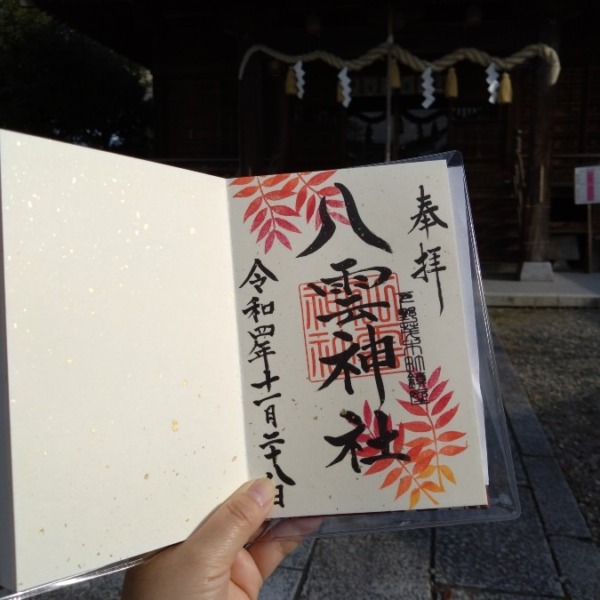 奉拝
八雲神社
令和四年十一月二十八日